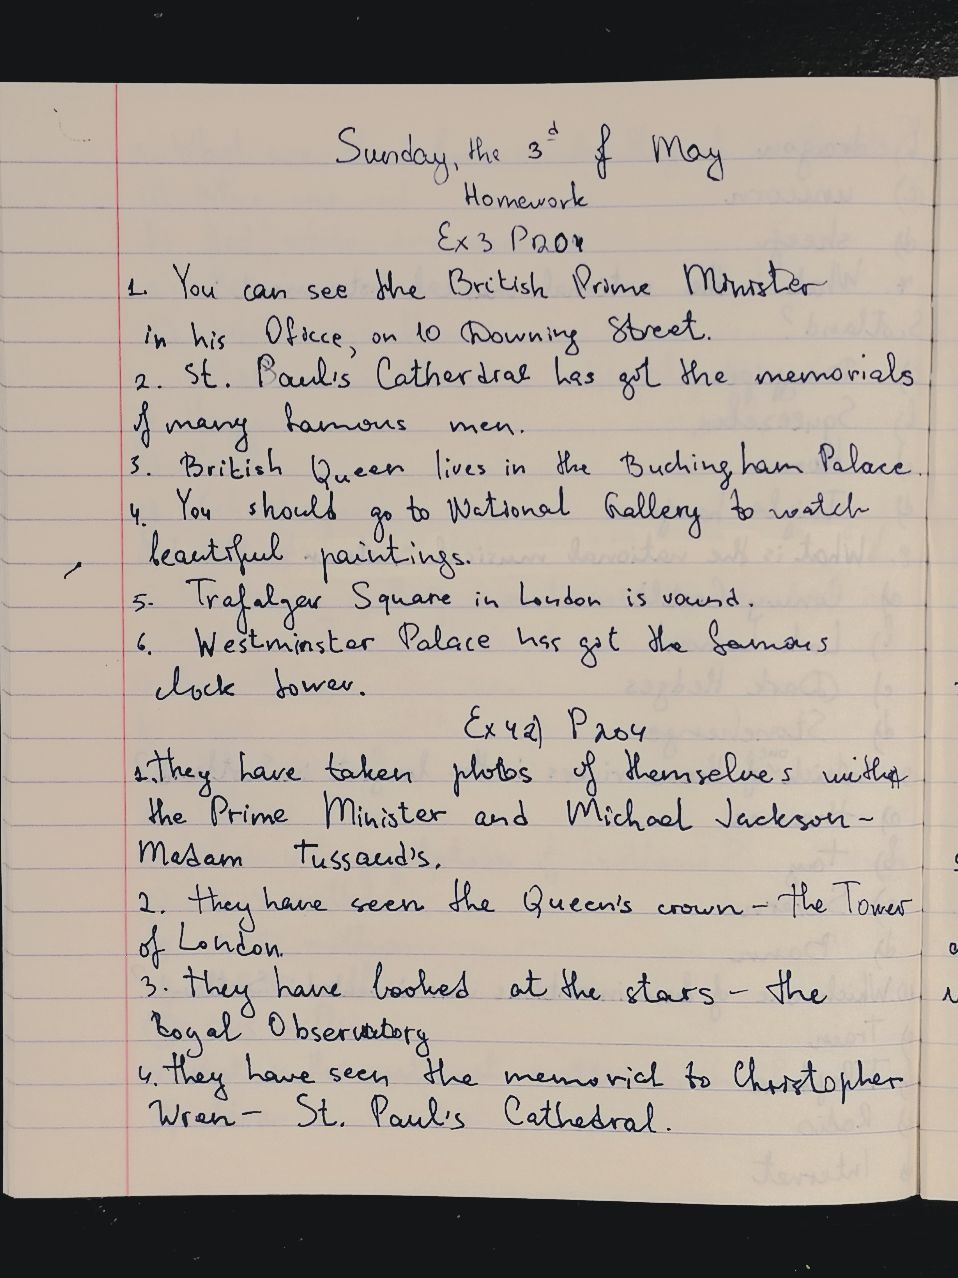 Sunday, the 3d of May
Homework
Ex 3 P 204
1. You can see the British Prime Minister
in his Oficce, on 10 Downing Street.
2. St. Paul's Catherdral has got the memorials
of many famous men.
3. British Queen lives in the Buckingham Palace.
4. You should go to National Gallery to watch
beautiful paintings.
5. Trafalger Square in London is round.
6. Westminster Palace has got the famous
clock tower.
Ex 4 a) P 204
1. They have taken photos of themselves with
the Prime Minister and Michael Jackson -
Madam Tussaud's.
2. They have seen the Queen's crown - the Tower
of London.
3. They have looked at the stars - the
Royal Observatory
4. They have seen the memorial to Christopher
Wren - St. Paul's Cathedral.